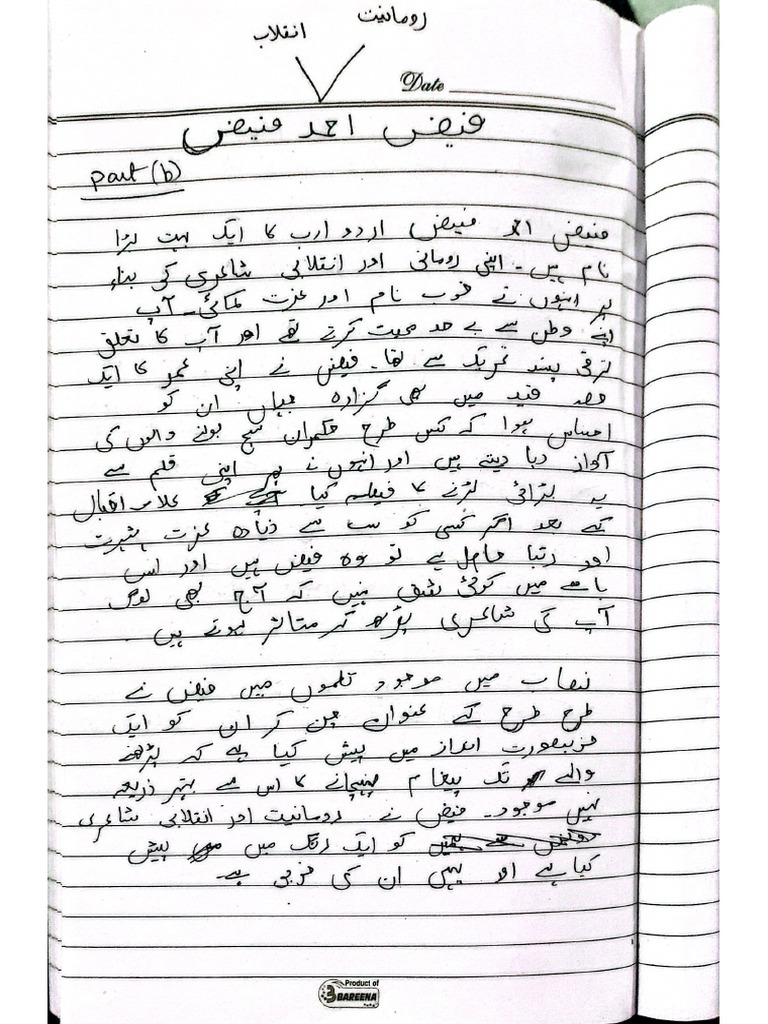 رومانیت
انقلاب
Date
فیض احمد فیض
Part (b)
فیض احمد فیض اردو ادب کا ایک بہت بڑا
نام ہیں۔ اپنی رومانی اور انقلابی شاعری کی بناء
پر انہوں نے خوب نام اور عزت کمائی۔ آپ
اپنے وطن سے بے حد محبت کرتے تھے اور آپ کا تعلق
ترقی پسند تحریک سے تھا۔ فیض نے اپنی عمر کا ایک
حصہ قید میں بھی گزارہ جہاں ان کو
احساس ہوا کہ کس طرح حکمران سچ بولنے والوں کی
آواز دبا دیتے ہیں اور انہوں نے پھر اپنی قلم سے
یہ لڑائی لڑنے کا فیصلہ کیا علامہ اقبال
کے بعد اگر کسی کو سب سے زیادہ عزت، شہرت
اور رتبا حاصل ہے تو وہ فیض ہیں اور اس
بات میں کوئی شق نہیں کہ آج بھی لوگ
آپ کی شاعری پڑھ کر متاثر ہوتے ہیں۔
نصاب میں موجود نظموں میں فیض نے
طرح طرح کے عنوان چن کر ان کو ایک
خوبصورت انداز میں پیش کیا ہے کہ پڑھنے
والے تک پیغام پہنچانے کا اس سے بہتر ذریعہ
نہیں موجود۔ فیض نے رومانیت اور انقلابی شاعری
کو ایک رنگ میں پیش
کیا ہے اور یہی ان کی خوبی ہے۔
Product of
BAREENA